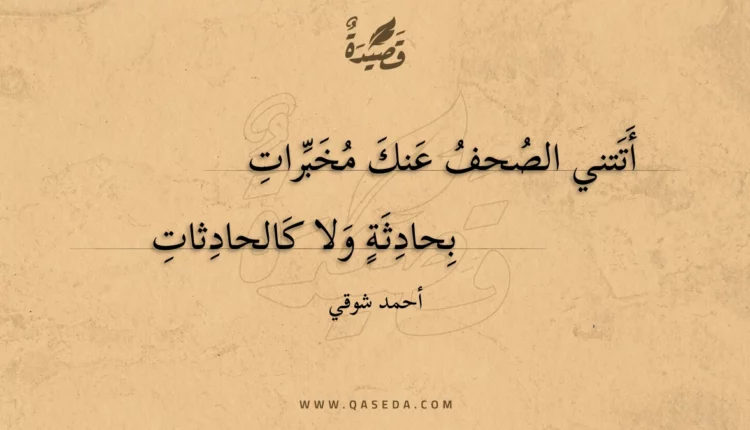 قَصِيْدَةٌ
أَتَتني الصُحفُ عَنكَ مُخَبِّراتِ
بِحادِثَةٍ وَلا كَالحادِثاتِ
أحمد شوقي
WWW.QASEDA.COM